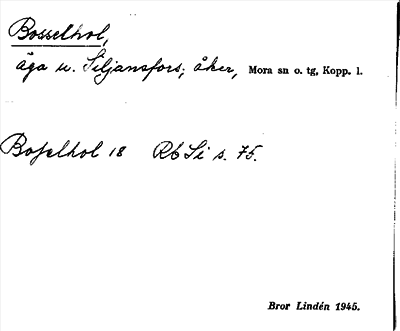 Bosselhol,
äga u. Siljansfors; åker, Mora sn o. tg, Kopp. l.
Bofselhol 18 Rb Si s. 75.
Bror Lindén 1945.